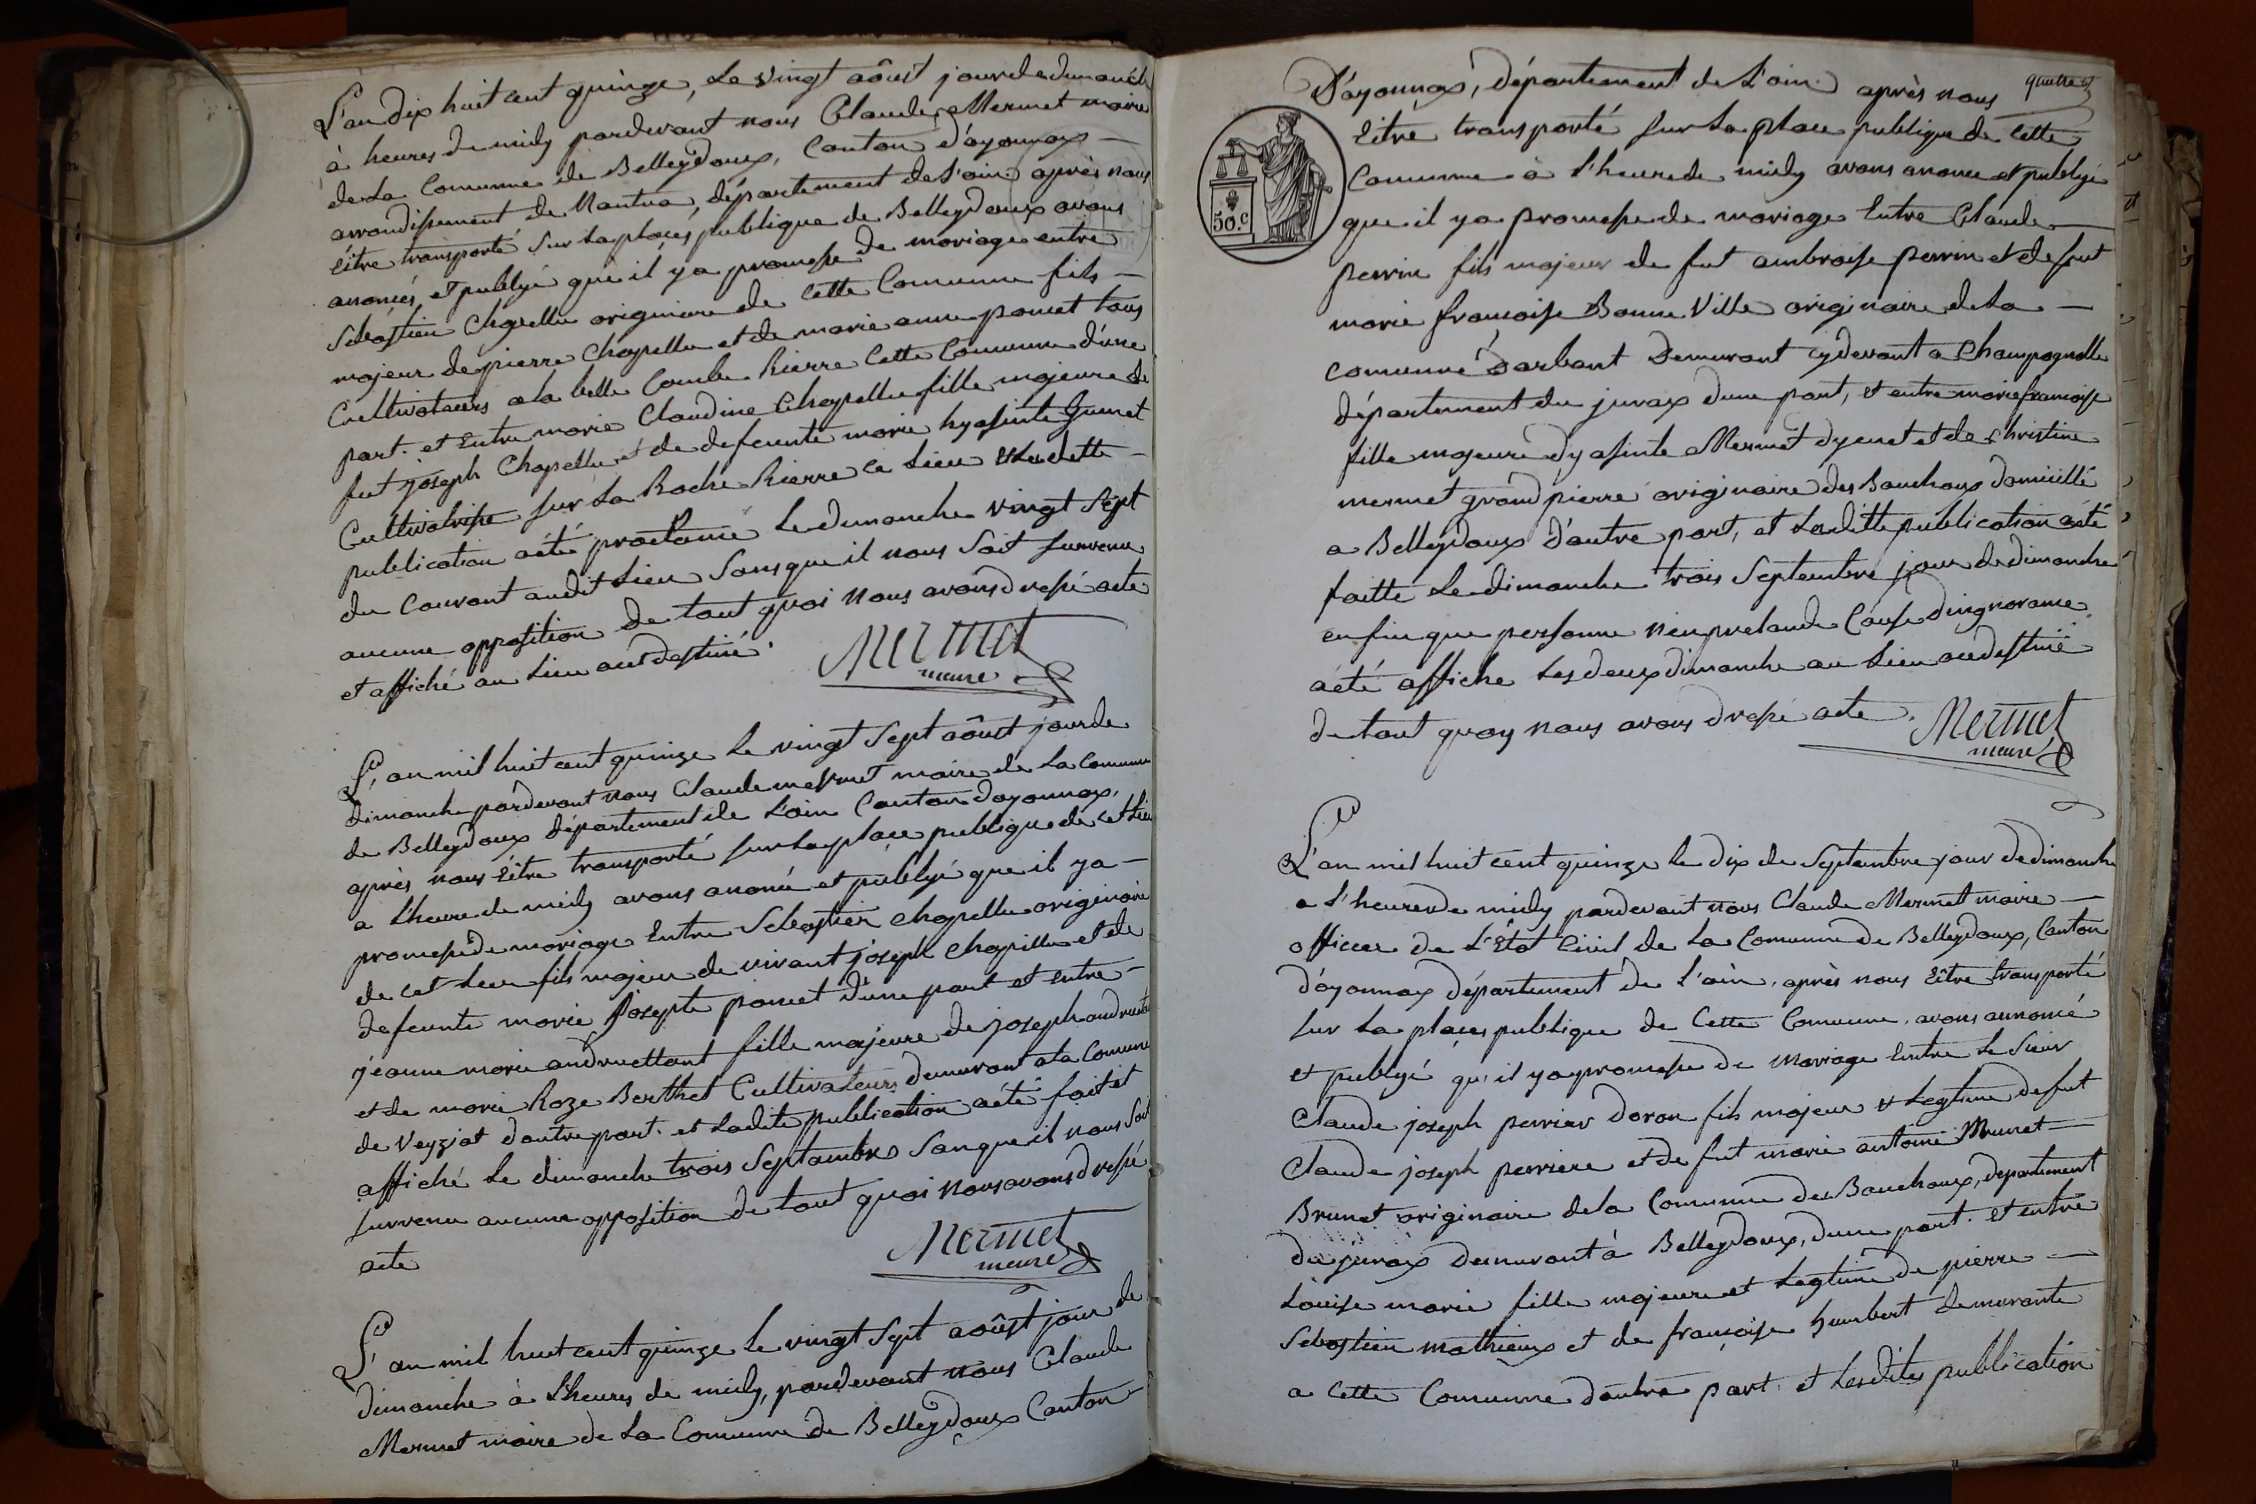 L'an dix huit cent quinze, le vingt aôust jour de dimanche
à heures de midy pardevant nous Claude Mermet maire
de La Comunne de Belleydoux, Canton d'ayonnax
arrondissement de Nantua, département de L'ain après nous
êitre transporté sur la place publique de Belleydoux avons
anoncés et publyé que il ya promesse de mariage entre
Sebastien Chapellu originaire de cette Comunne fils
majeur de pierre Chapellu et de marie anne poncet tous
Cultivateurs a la belle Combe Rierre Cette Comunne d'une
part. et Entre marie Claudine Chapellu fille majeure de
fut joseph Chapellu et de defeunte marie hyasinte Gumet
Cultivatrise sur La Roche Rierre ce Lieu et Ladette
publication aété proclamé Le dimanche vingt Sept
du Courant audit Lieu Sans que il nous Soit survenu
aucune opposition de tout quoi Nous avons dressé acte
et affiché au Lieu acedestiné.
Mermet
maire
L'an mil huit cent quinze Le vingt Sept aôust jour de
dimanche pardevant nous Claude mermet maire de La Comunne
de Belleydoux département de L'ain Canton dayonnax,
après nous Êitre transporté sur La place publique de cet Lieu
a Lheure de midy avons anoncé et publyé que il ya
promesse de mariage Entre Sebastien Chapellu originaire
de cet Lieu fils majeur de vivant joseph Chapellu et de
defeunte marie josepte poncet d'une part et entre
jéanne marie andruettant fille majeure de joseph andruetant
et de marie Roze Berthet Cultivateurs demurant a la Comune
de Veyziat d'autre part. et Ladite publication aété fait et
affiché Le dimanche trois Septambre San que il nous Soit
survenu aucune opposition de tout quoi Nous avons dressé
acte
Mermet
maire
L'an mil huit cent quinze Le vingt Sept aoûst jour de
dimanche à Lheures de midy, pardevant nous Claude
Mermet maire de La Comunne de Belleydoux Canton
quatre
D'ayonnax, département de L'ain après nous
Êitre transporté sur La place publique de Cette
Comunne à L'heure de midy avons anonce et publyé
que il ya promesse de mariage Entre Claude
perrin fils majeur de fut ambroise perrin et de fut
marie françoise Bonne Ville originaire de La
comunne Darbant Demurant cydevant a Champagnolle
département du jurax dune part, et entre marie francoise
fille majeure dyasinte Mermet dyenet et de Christine
mermet grand pierre originaire des Bouchoux domicillé
a Belleydoux D'autre part, et Laditte publication aété
faitte Le dimanche trois Septembre jour de dimanche
enfin que personne n'en prelande Cause dingnorance
aété affiche Les deux dimanche au Lieu acedestiné
de tout quoy nous avons dressé acte.
Mermet
maire
L'an mil huit cent quinze le dix de Septembre jour de dimanche
a L'heure de midy pardevant nous Claude Mermet maire
officier de L'Etat Civil de La Comunne de Belleydoux, Canton
d'ayonnax département de L'ain, après nous Êitre transporté
sur La places publique de Cette Comunne, avons annoncé
et publyé qu'il ya promesse de Mariage Entre Le Sieur
Claude joseph perrier doron fils majeur et Legtime de fut
Claude joseph perriere et de fut marie antoine Mrunet
Brunet originaire de la Comunne des Bouchoux, departement
du jurax demurant à Belleydoux, dune part. et entre
Loüise marie fille majeure et Legtime de pierre
Sebastien mathieux et de françoise humbert demurante
a cette Comunne dautre part et Lesdites publication
50.C